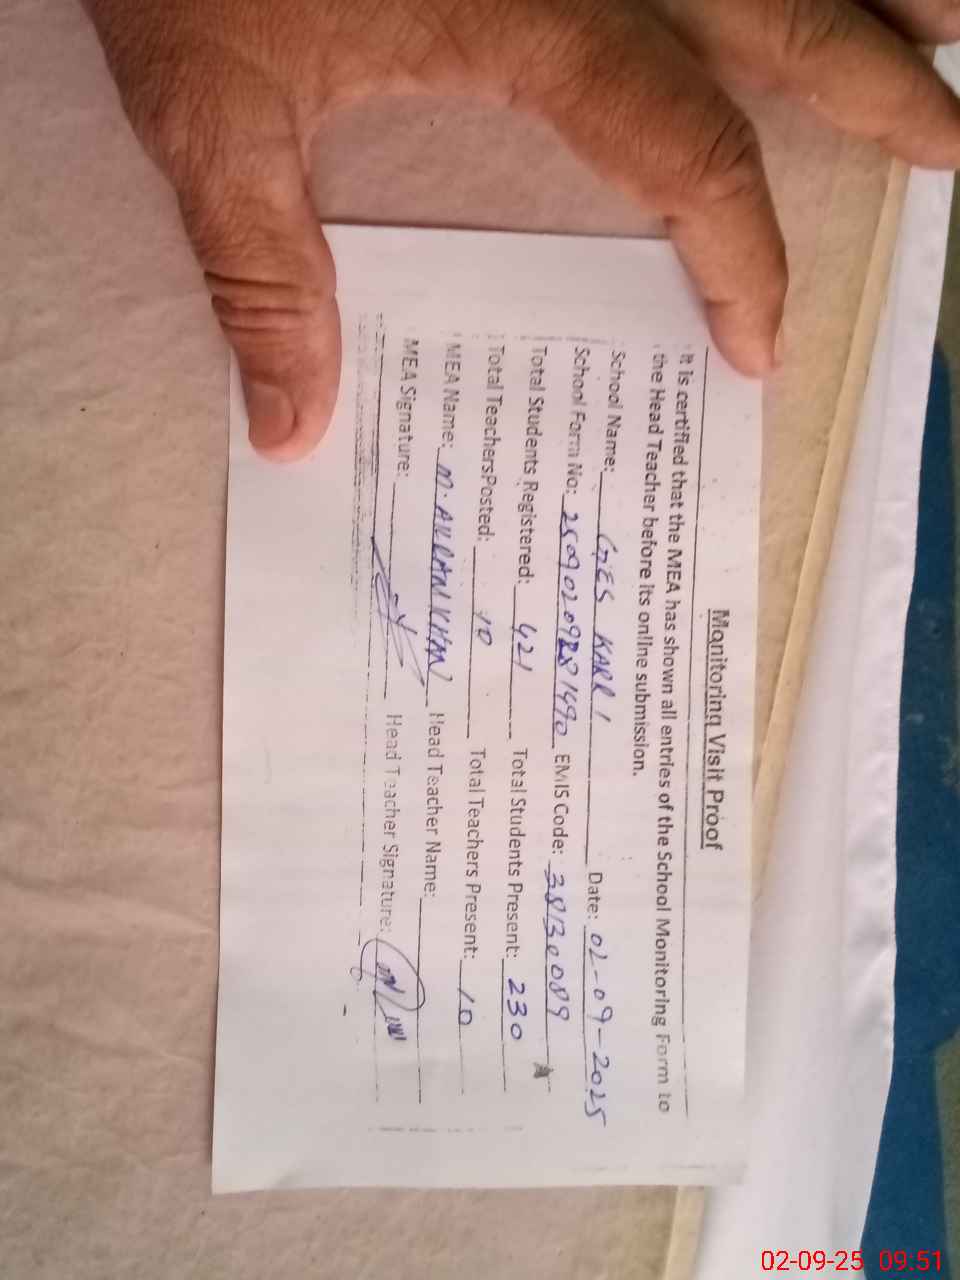 Monitoring Visit Proof
It is certified that the MEA has shown all entries of the School Monitoring Form to
the Head Teacher before its online submission.
School Name: GES KARRI Date: 02-09-2025
School Form No: EMIS Code: 38130089
Total Students Registered: 421 Total Students Present: 230
Total Teachers Posted: 10 Total Teachers Present: 10
MEA Name: M. AKRAM KHAN Head Teacher Name:
MEA Signature: Head Teacher Signature:
02-09-25 09:51